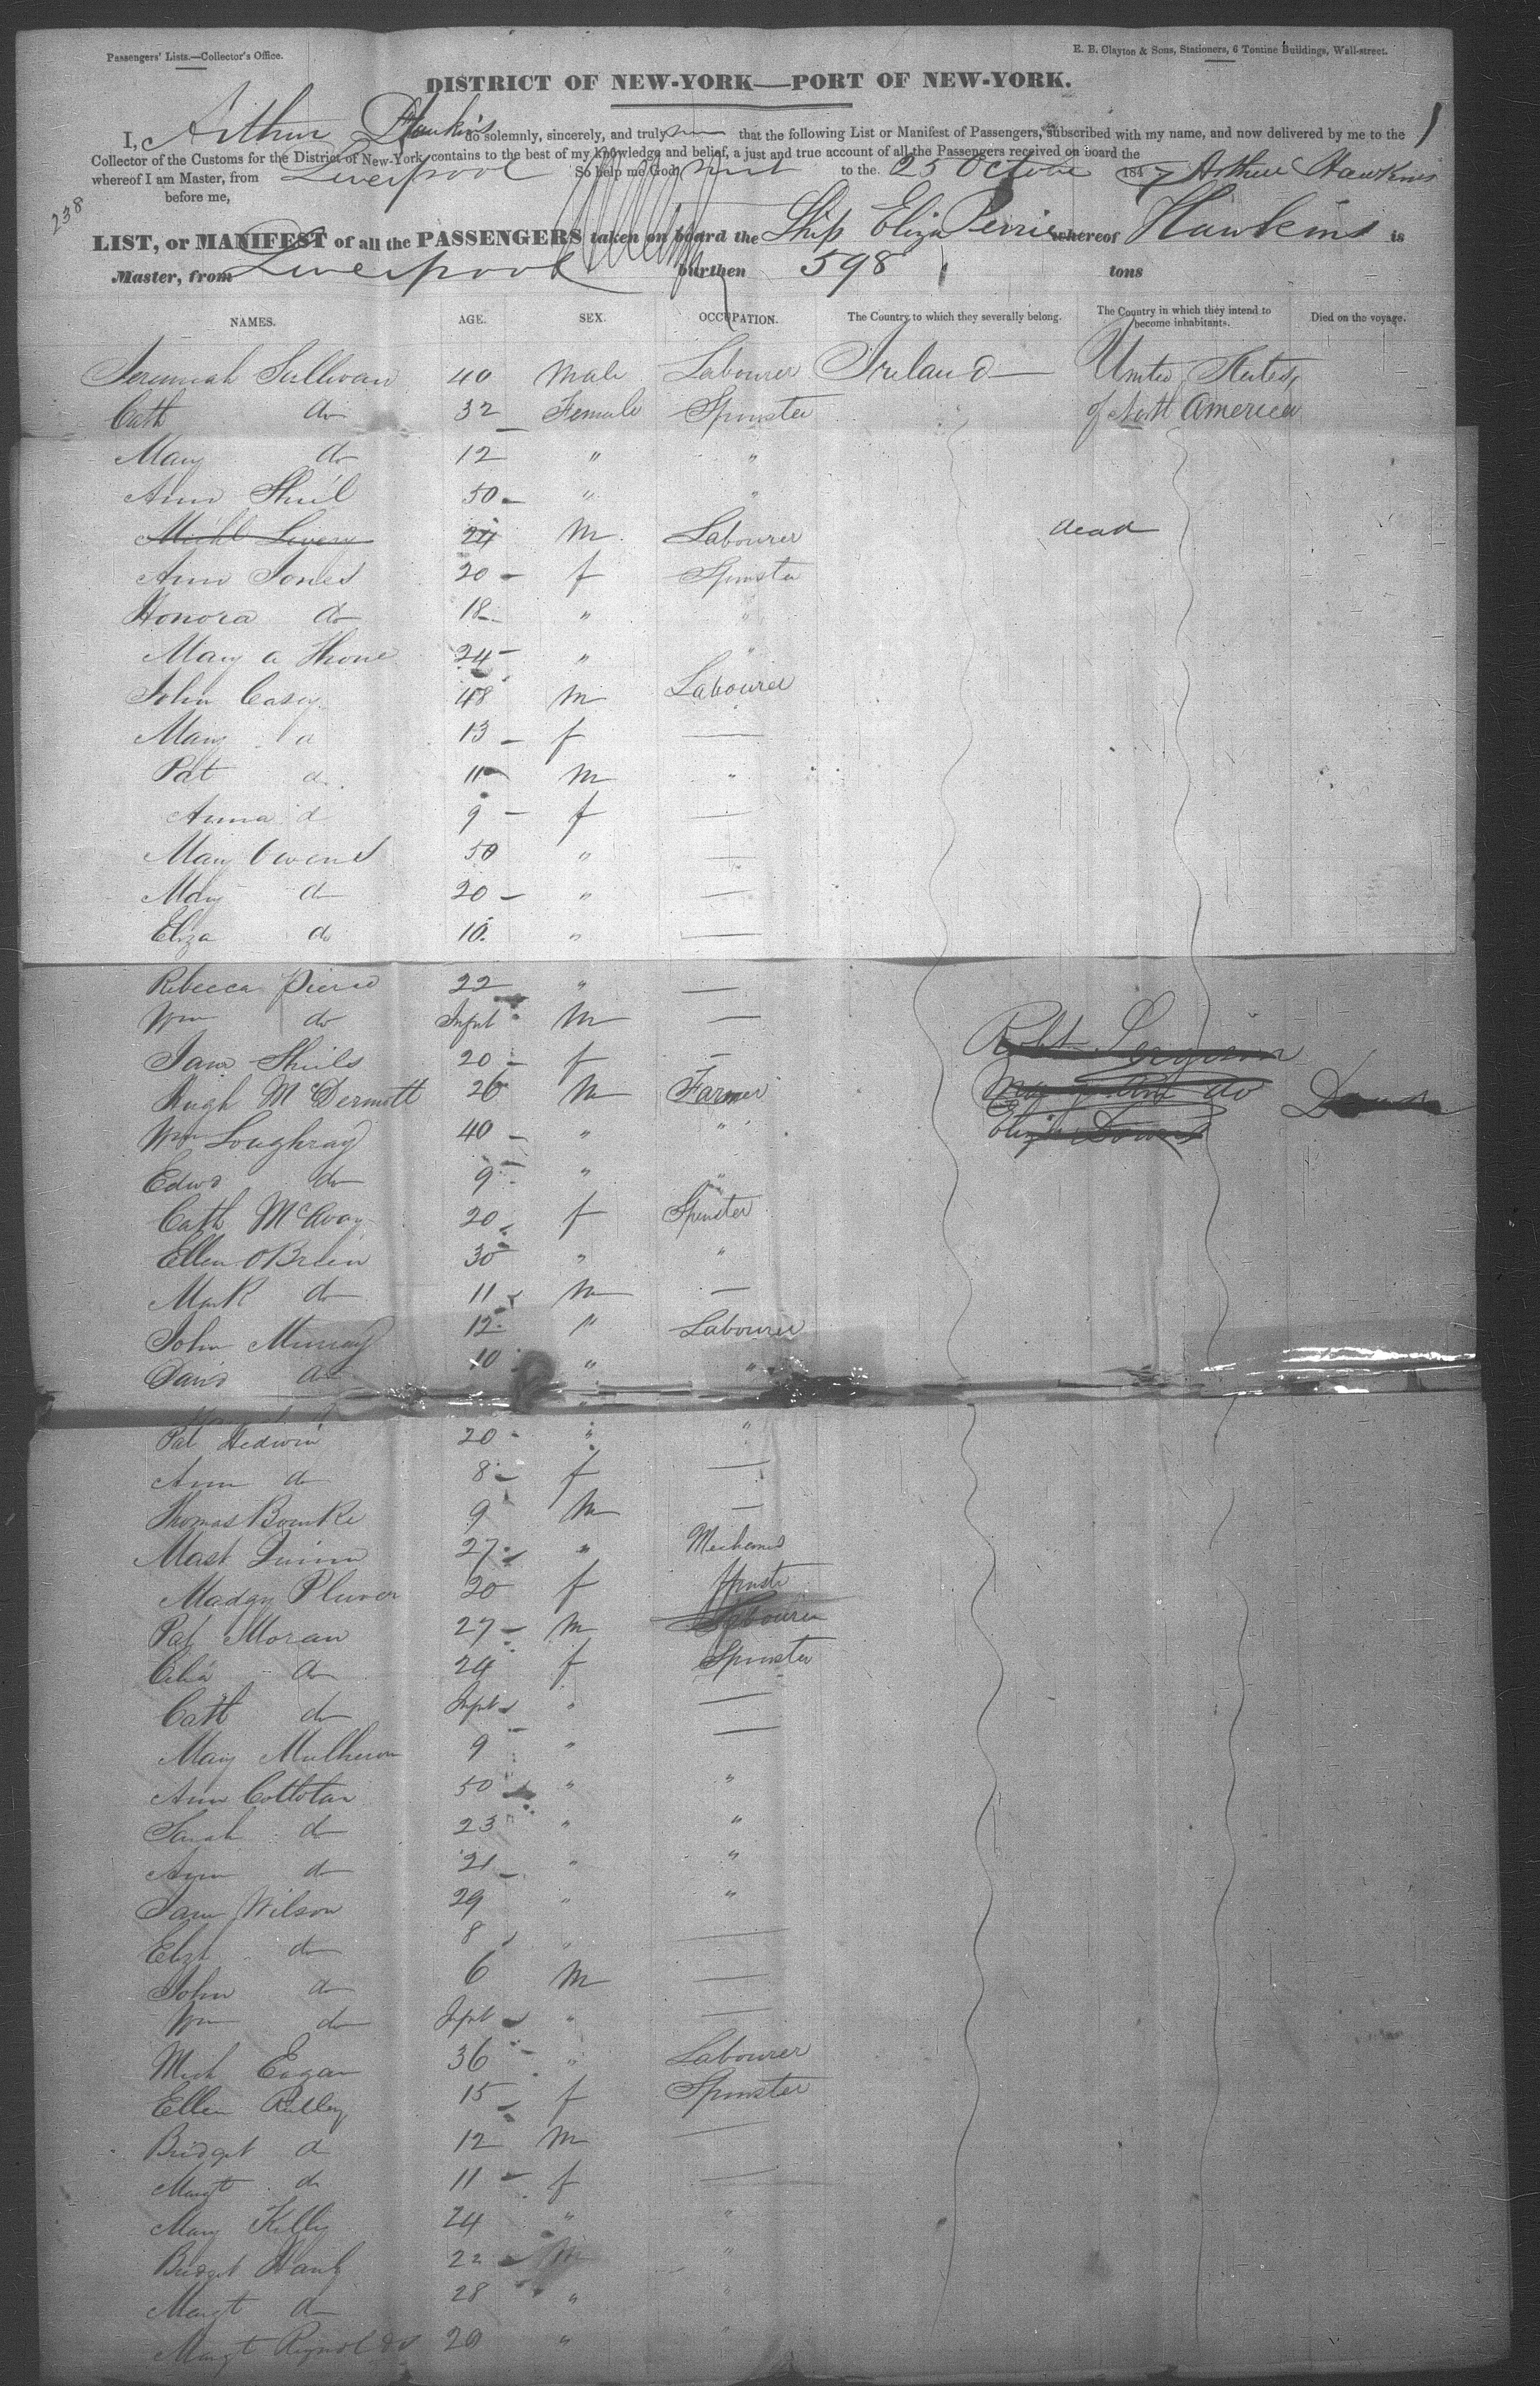 Passengers' Lists.—Collector's Office.
E. B. Clayton & Sons, Stationers, 6 Tontine Buildings, Wall-street.
DISTRICT OF NEW-YORK—PORT OF NEW-YORK.
I, Arthur Hawkins do solemnly, sincerely, and truly that the following List or Manifest of Passengers, subscribed with my name, and now delivered by me to the
Collector of the Customs for the District of New-York, contains to the best of my knowledge and belief, a just and true account of all the Passengers received on board the
whereof I am Master, from Liverpool So help me God. to the 25 October 1847 Arthur Hawkins
before me,
238
LIST, or MANIFEST of all the PASSENGERS taken on board the Ship Eliza Perrie whereof Hawkins is
Master, from Liverpool burthen 598 tons
NAMES. AGE. SEX. OCCUPATION. The Country to which they severally belong. The Country in which they intend to become inhabitants. Died on the voyage.
Jeremiah Sullivan 40 Male Labourer Ireland United States
Cath do 32 Female Spinster of North America
Mary do 12 " "
Ann Shiel 50 " "
Michl 24 M Labourer dead
Ann Jones 20 f Spinster
Honora do 18 " "
Mary a 24 " "
John Casey 48 M Labourer
Mary d 13 f —
Pat d 11 M "
Anna d 9 f —
Mary Owens 50 " —
Mary d 20 " —
Eliza do 10 " —
Rebecca Pierce 22 " —
Wm do Inft M —
Jane Shiels 20 f —
Hugh McDermott 26 M Farmer
Wm Loughray 40 " "
Edwd do 9 " "
Cath McAvoy 20 f Spinster
Ellen OBrien 30 " "
Mark do 11 M —
John Murray 12 " Labourer
David do 10 " "
Pat Hedwin 20 " "
Ann do 8 f —
Thomas Bourke 9 M —
Quinn 27 " Mechanic
Madgy 20 f Spinster
Pat Moran 27 M Labourer
Celia do 24 f Spinster
Cath do Inft " —
Mary Mulheron 9 " —
Ann 50 " "
Sarah d 23 " "
Ann d 21 " "
Jane Wilson 29 " "
Eliza do 8 " —
John do 6 M —
Wm do Inft " —
Mich Eagan 36 " Labourer
Ellen Reilley 15 f Spinster
Bridget d 12 M —
Margt do 11 f —
Mary Kelly 24 " "
Bridget 22 M "
Margt do 28 " "
Margt Reynolds 20 " "